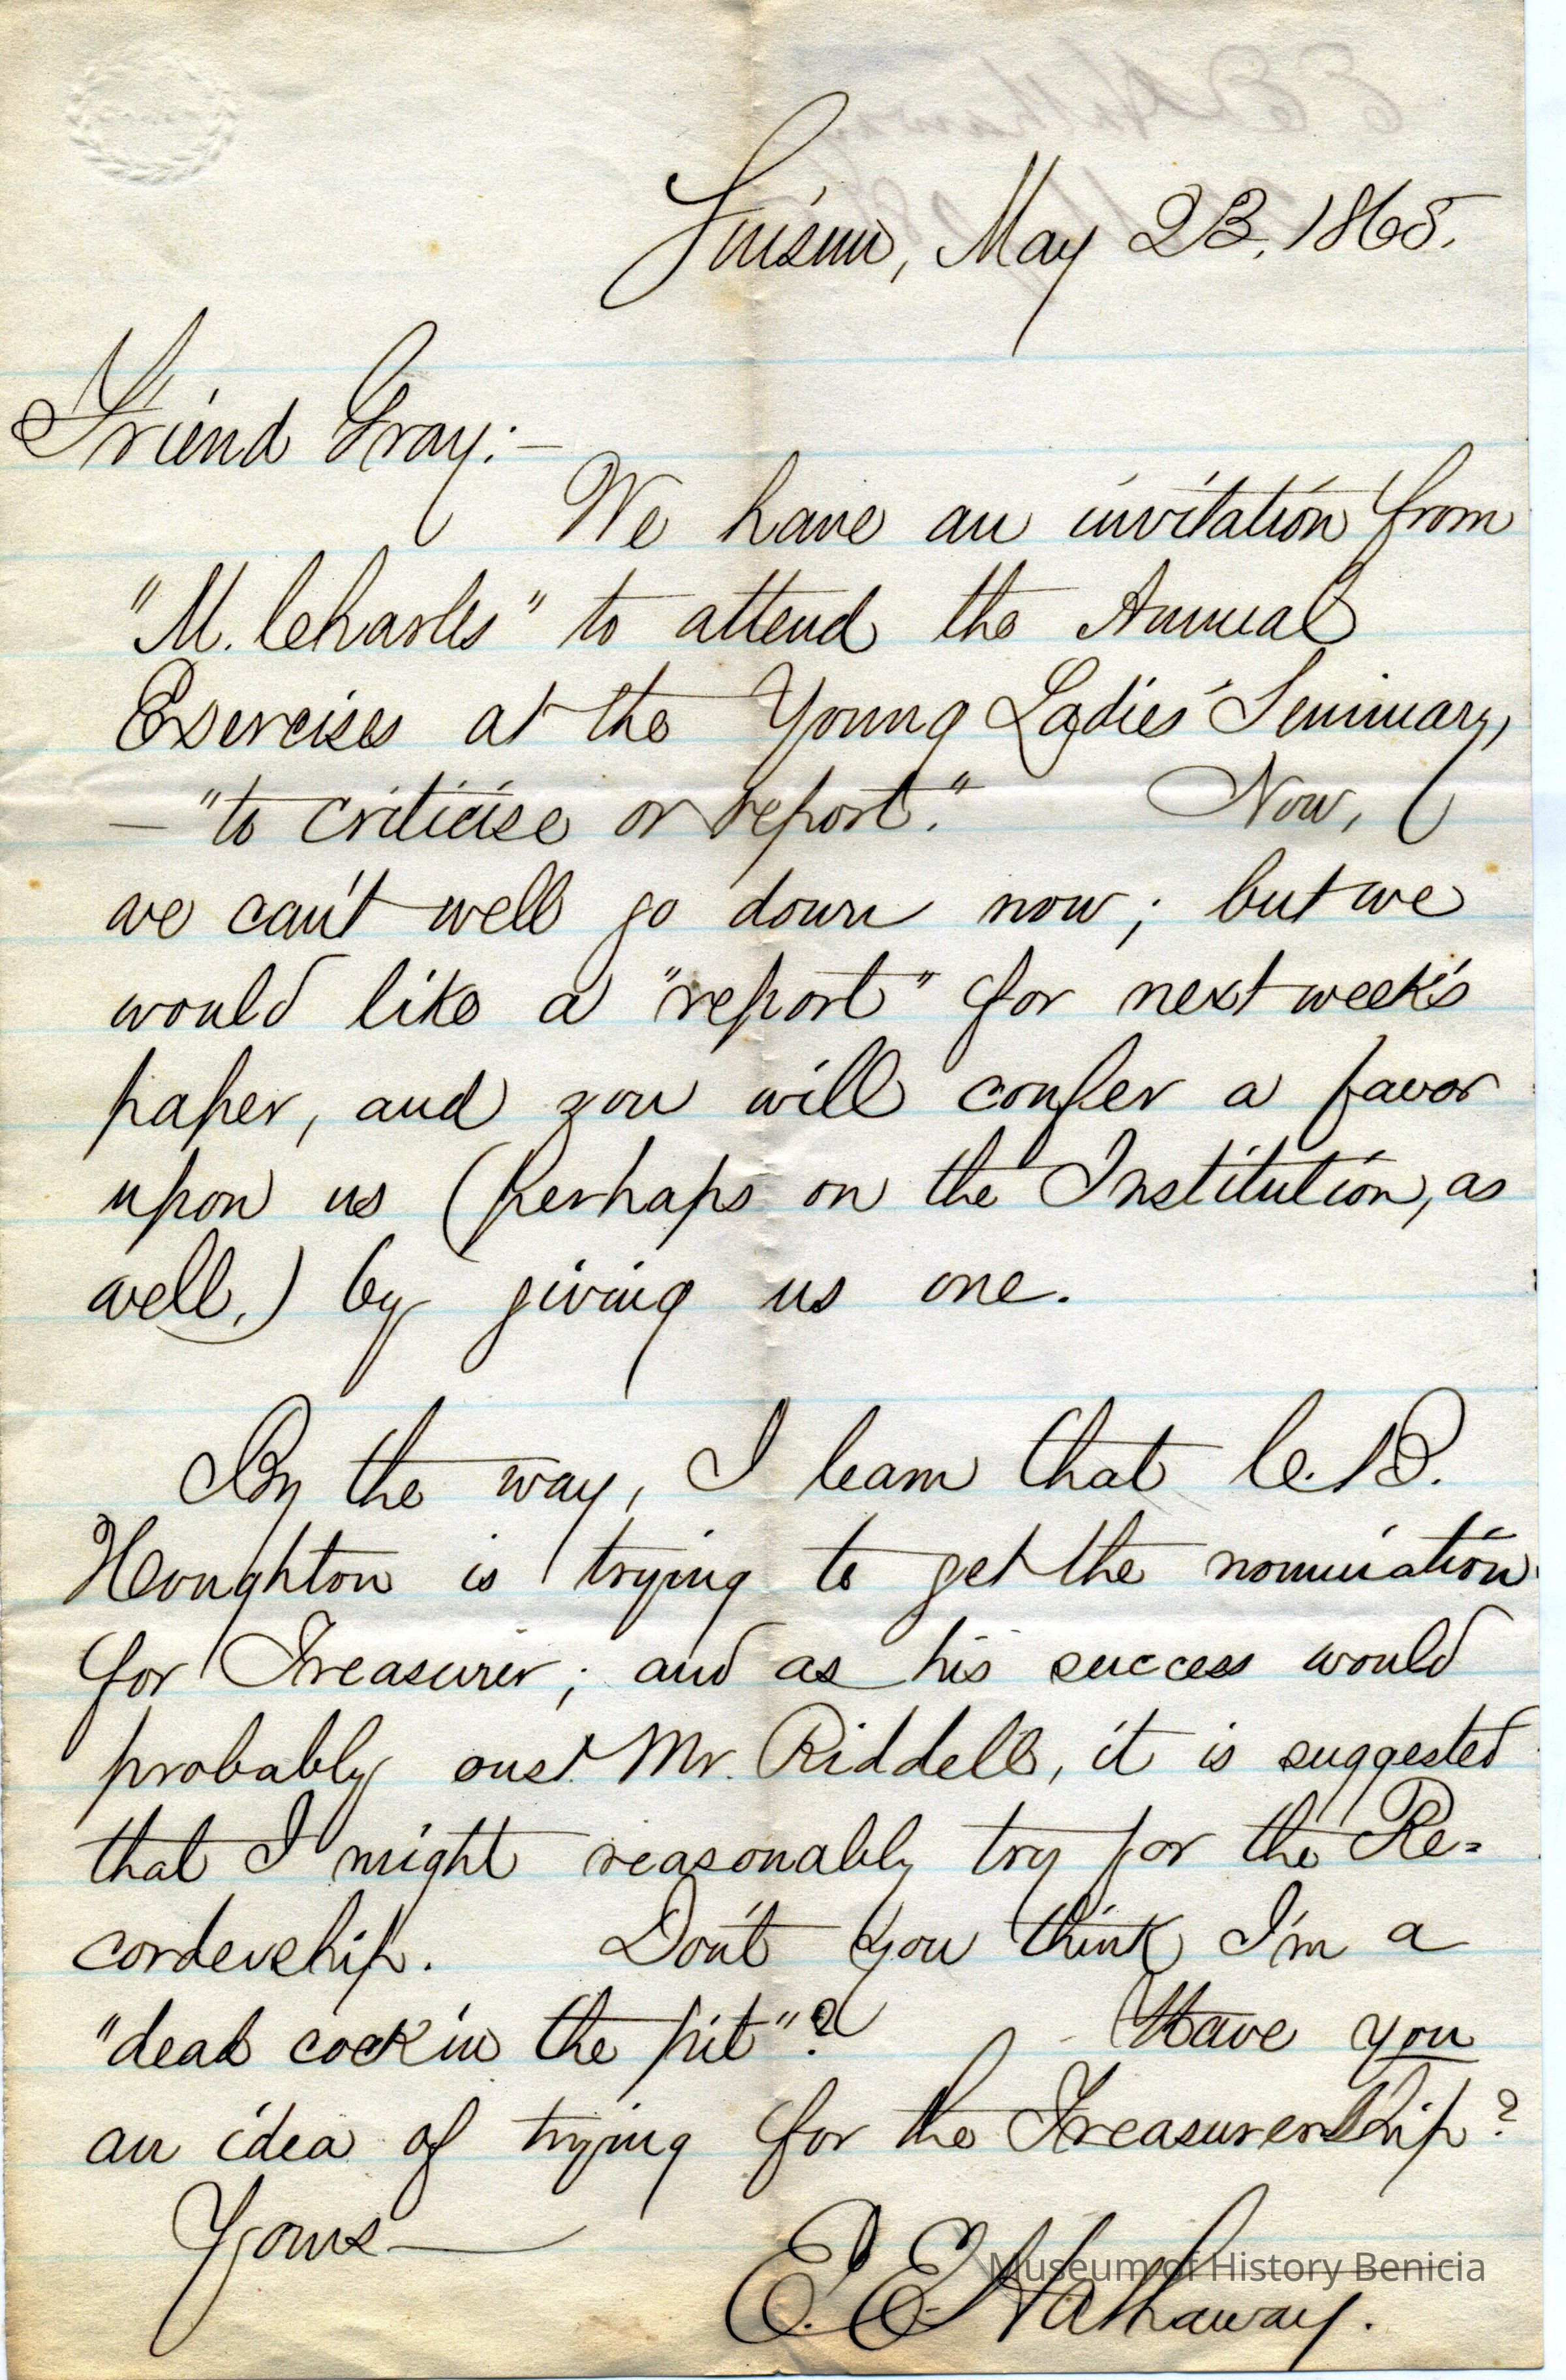 Suisun, May 23, 1865.
Friend Gray:—
We have an invitation from
"M. Charles" to attend the Annual
Exercises at the Young Ladies' Seminary,
— "to criticise or report." Now,
we can't well go down now; but we
would like a "report" for next week's
paper, and you will confer a favor
upon us (perhaps on the Institution, as
well,) by giving us one.
By the way, I learn that C. B.
Houghton is trying to get the nomination
for Treasurer; and as his success would
probably oust Mr. Riddell, it is suggested
that I might reasonably try for the Re=
cordership. Don't you think I'm a
"dead cock in the pit"? Have you
an idea of trying for the Treasurership?
Yours—
E. E. Hathaway.
Museum of History Benicia